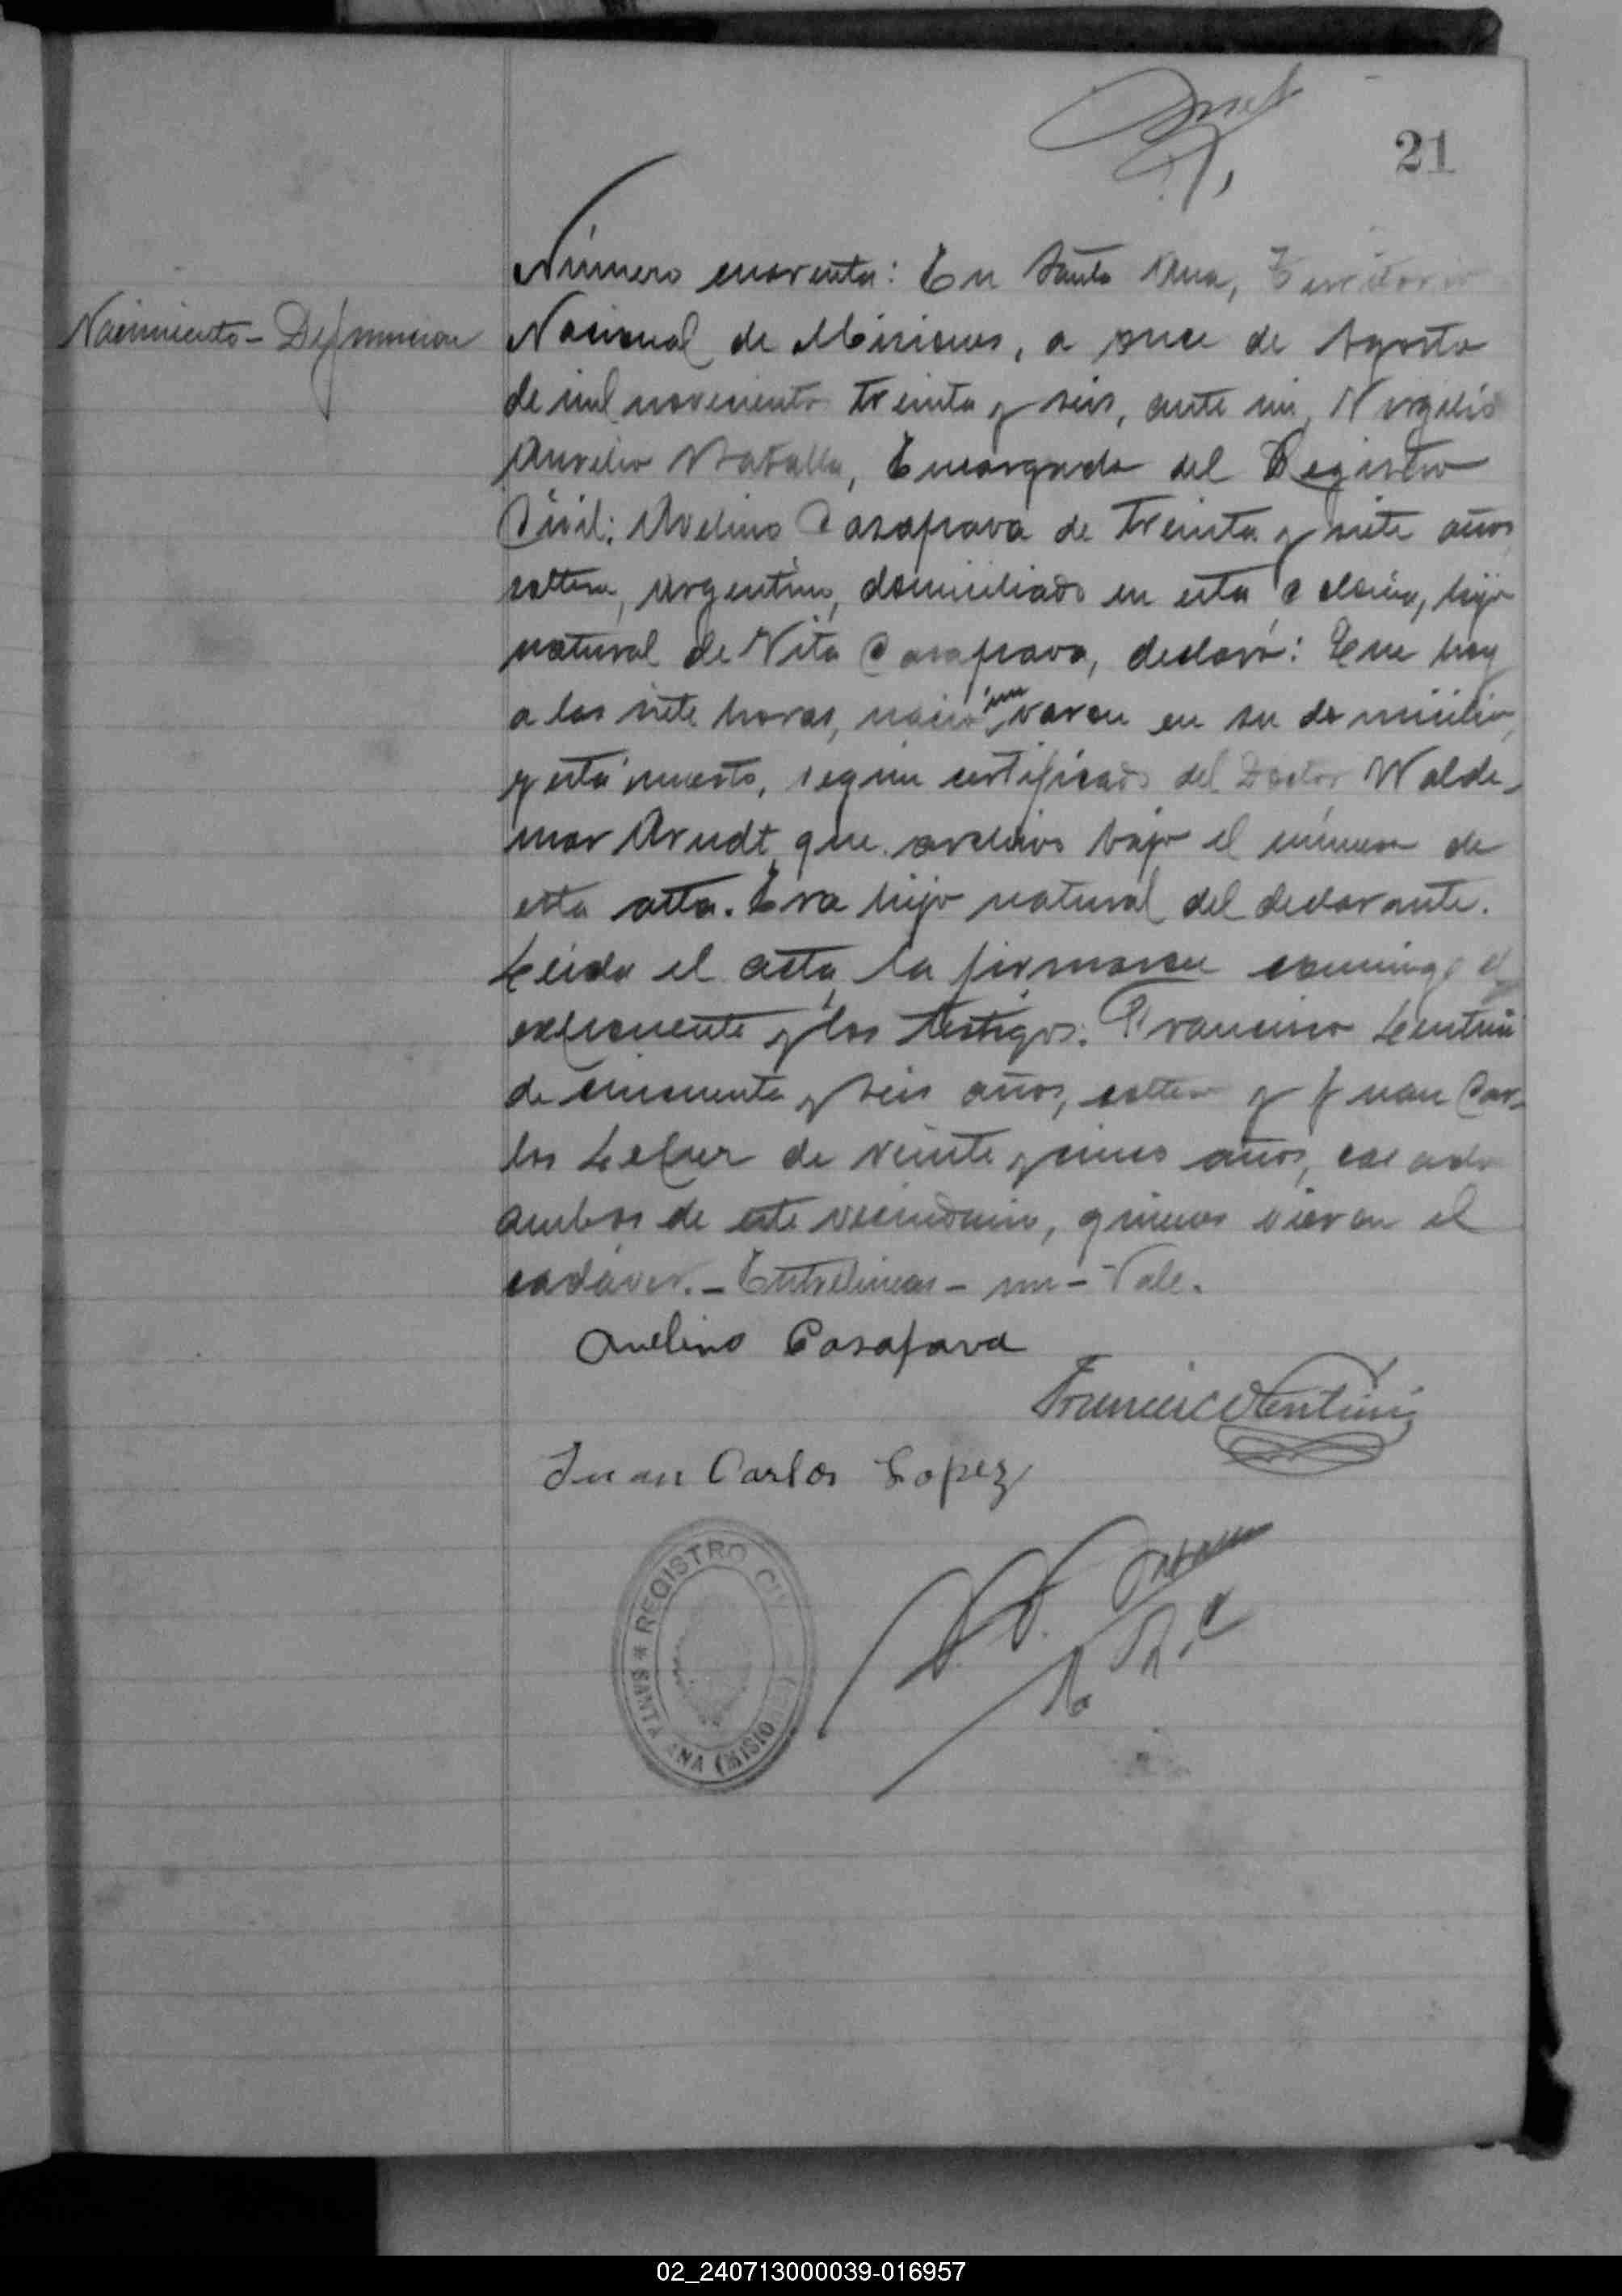 21
Número cuarenta: En Santa Ana, Territorio
Nacimiento - Defunción
Nacional de Misiones, a once de Agosto
de mil novecientos treinta y seis, ante mi, Virgilio
Aurelio Batalla, Encargado del Registro
Civil: Avelino Casafrava de treinta y siete años
soltero, argentino, domiciliado en esta Colonia, hijo
natural de Vita Casafrava, declaró: Que hoy
a las siete horas, nació un varon en su domicilio,
y está muerto, según certificado del Doctor Walde-
mar Arndt que archivo bajo el número de
esta atta. Era hijo natural del declarante.
Leida el acta la firmaron conmigo el
exponente y los testigos: Francisco Lentini
de cincuenta y seis años, soltero y Juan Car-
los Lopez de veinte y cinco años, casado
ambos de este vecindario, quienes vieron el
cadáver. - Entrelineas - un - Vale.
Avelino Casafava
Francisco Lentini
Juan Carlos Lopez
REGISTRO CIVIL
SANTA ANA (MISIONES)
02_240713000039-016957